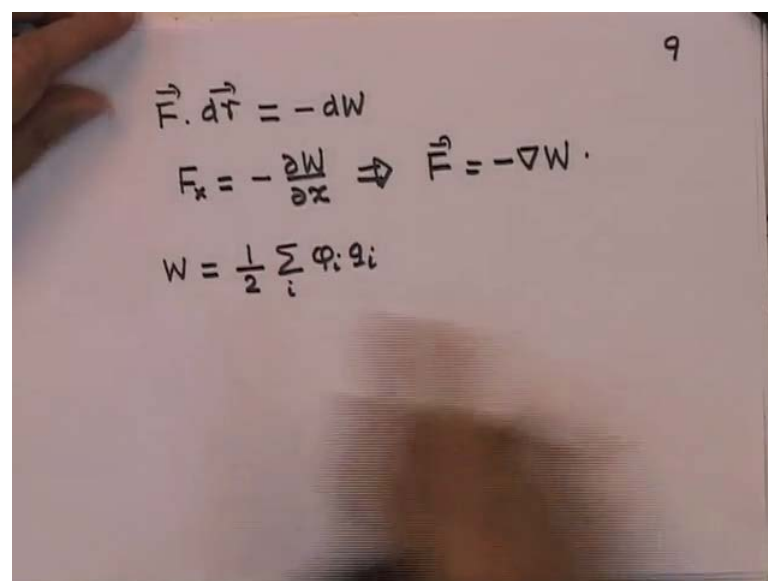 9
F⃗. dr⃗ = - dW
Fₓ = - ∂W/∂x ⇒ F⃗ = -∇W.
W = 1/2 Σᵢ φᵢ qᵢ